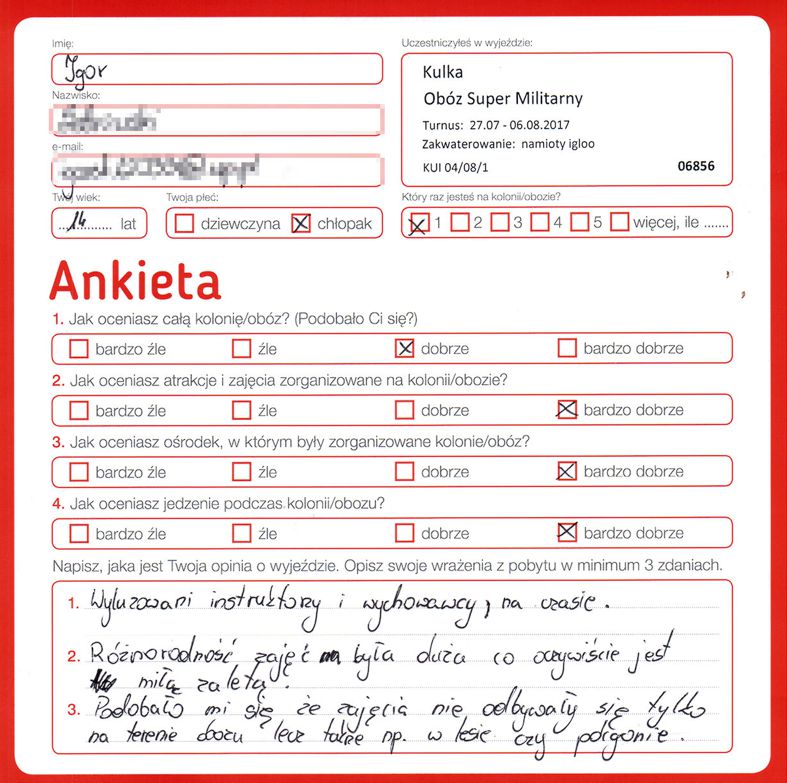 Imię:
Igor
Nazwisko:
e-mail:
Twój wiek:
14 lat
Twoja płeć:
dziewczyna chłopak
Uczestniczyłeś w wyjeździe:
Kulka
Obóz Super Militarny
Turnus: 27.07 - 06.08.2017
Zakwaterowanie: namioty igloo
KUI 04/08/1 06856
Który raz jesteś na kolonii/obozie?
1 2 3 4 5 więcej, ile .......
Ankieta
1. Jak oceniasz całą kolonię/obóz? (Podobało Ci się?)
bardzo źle źle dobrze bardzo dobrze
2. Jak oceniasz atrakcje i zajęcia zorganizowane na kolonii/obozie?
bardzo źle źle dobrze bardzo dobrze
3. Jak oceniasz ośrodek, w którym były zorganizowane kolonie/obóz?
bardzo źle źle dobrze bardzo dobrze
4. Jak oceniasz jedzenie podczas kolonii/obozu?
bardzo źle źle dobrze bardzo dobrze
Napisz, jaka jest Twoja opinia o wyjeździe. Opisz swoje wrażenia z pobytu w minimum 3 zdaniach.
1. Wyluzowani instruktorzy i wychowawcy, na czasie.
2. Różnorodność zajęć była duża co oczywiście jest
miłą zaletą.
3. Podobało mi się że zajęcia nie odbywały się tylko
na terenie obozu lecz także np. w lesie czy poligonie.